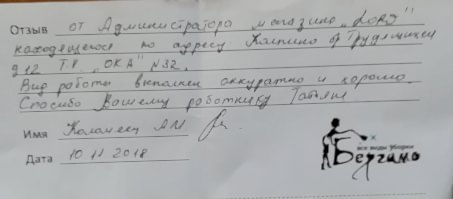 Отзыв от Администратора магазина „LORD"
находящегося по адресу Колпино ул Трудящихся
д 12 Т.Р. „ОКА" №32.
Вид работы выполнен аккуратно и хорошо
Спасибо Вашему работнику Татьяне
Имя Коломеец АМ
Дата 10 11 2018
все виды уборки
Бергино